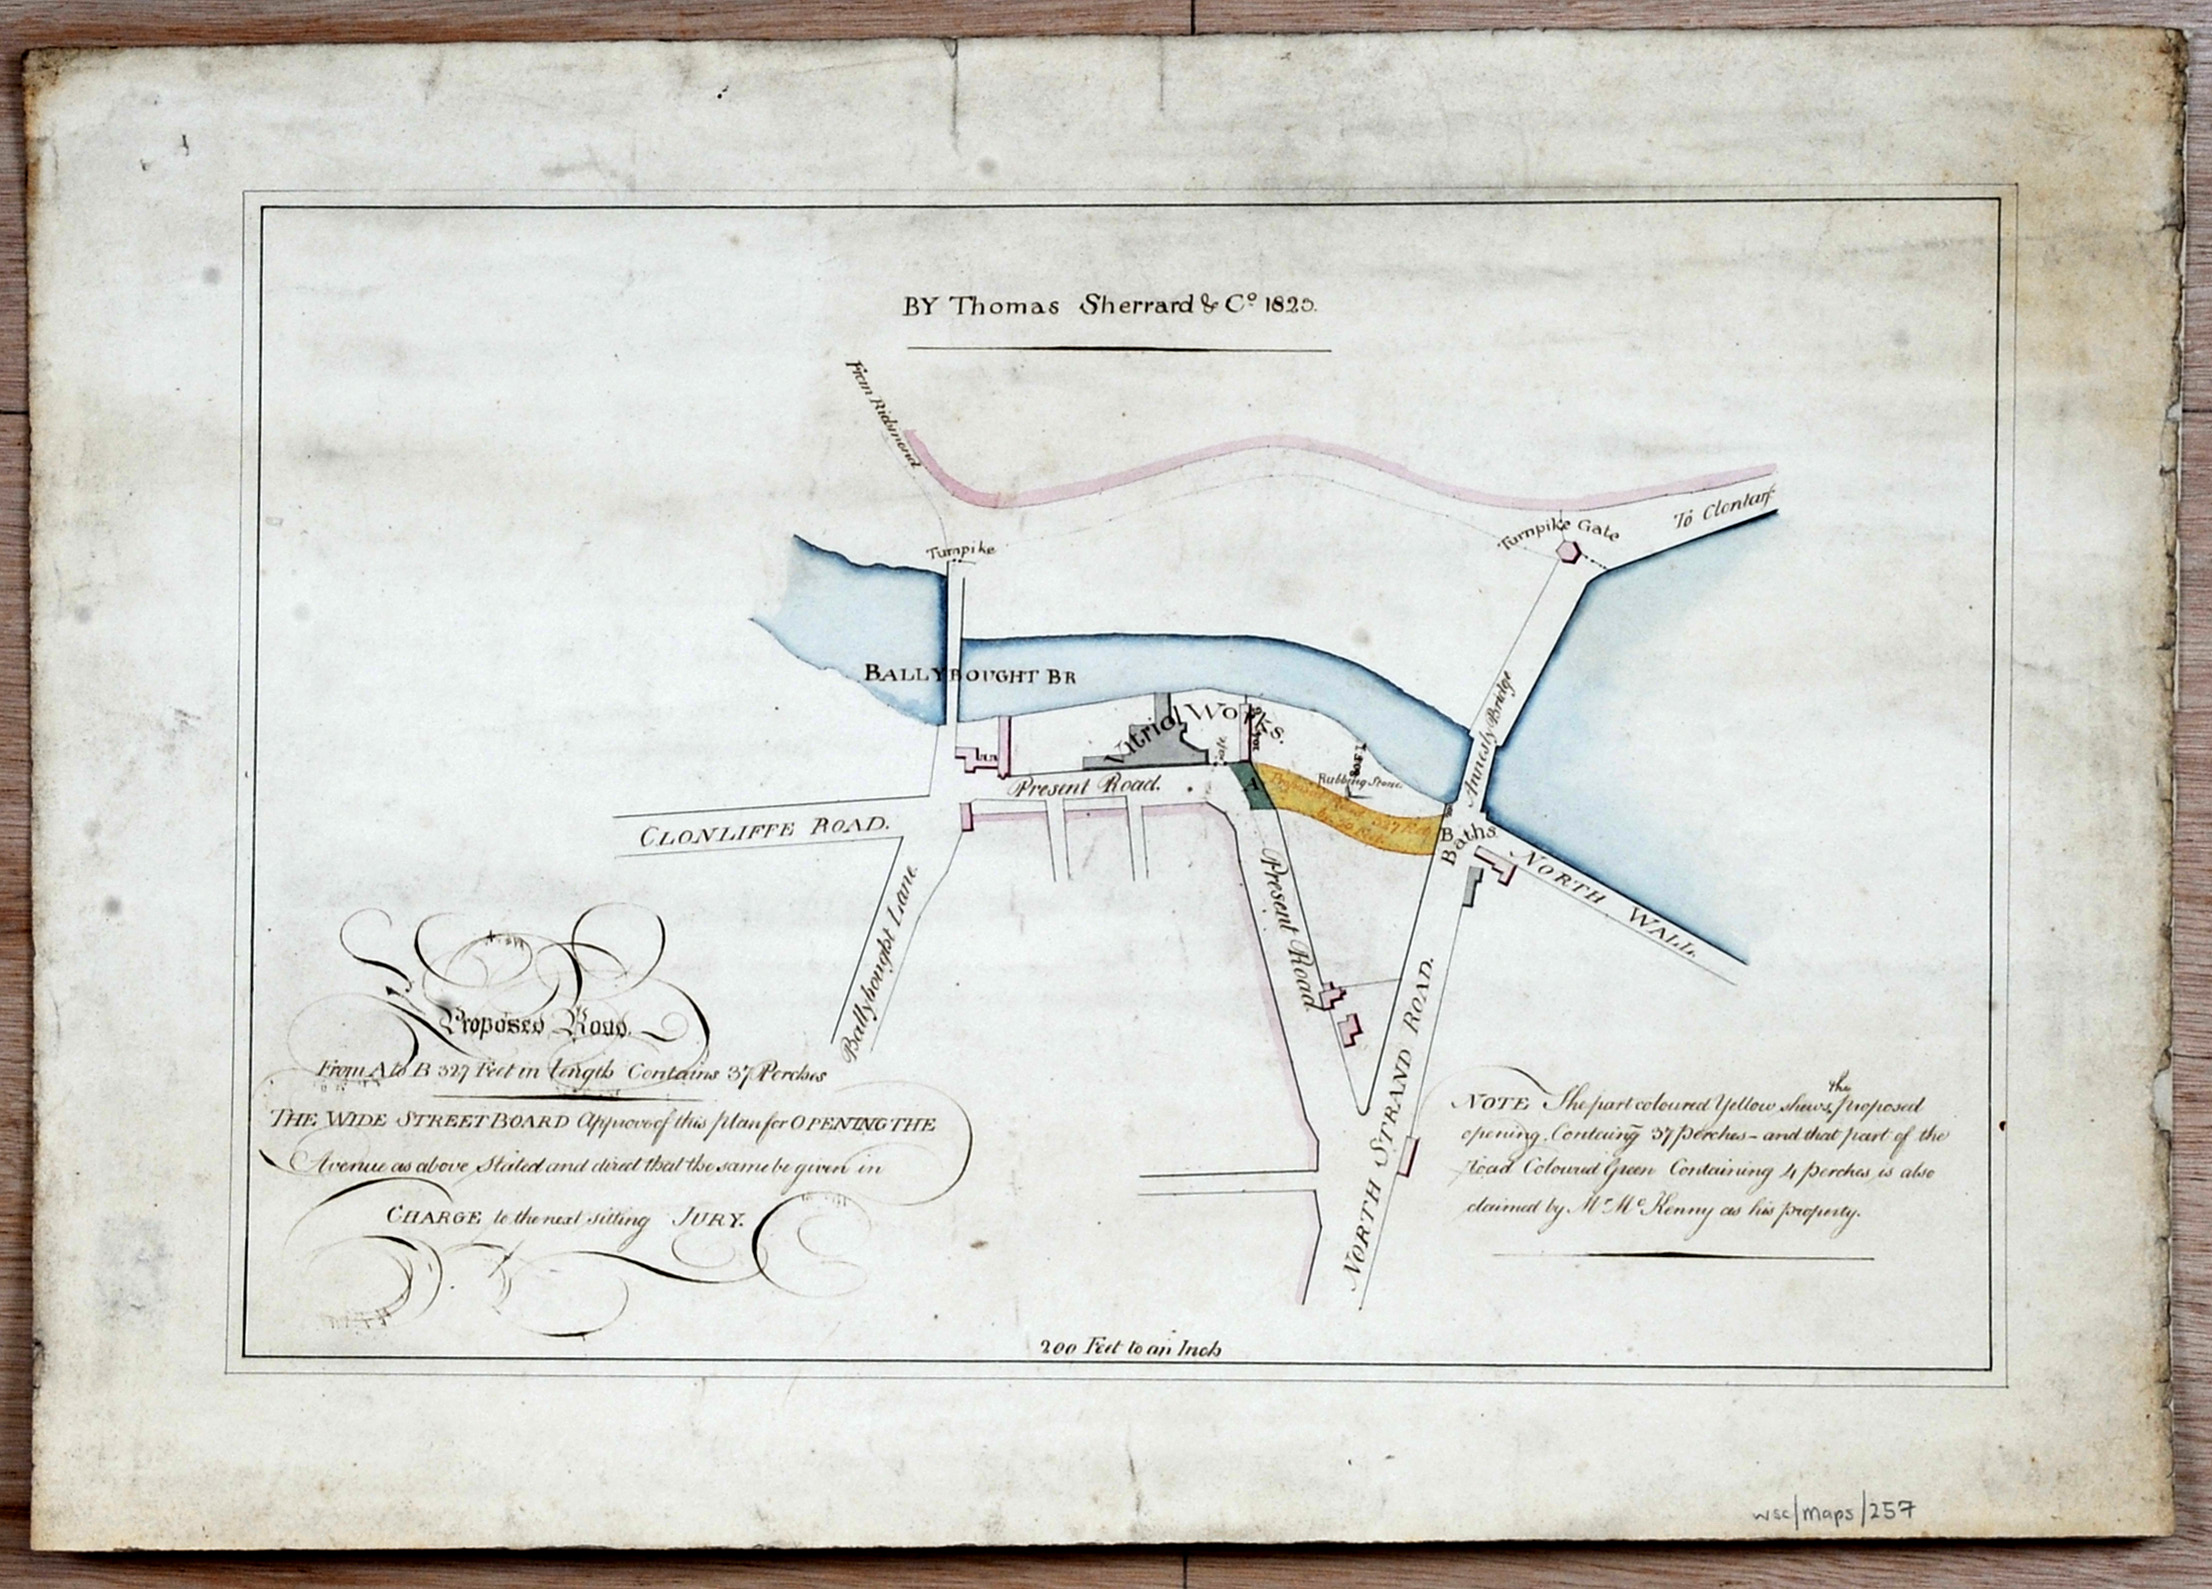 BY Thomas Sherrard & Co. 1820.
From Richmond
Turnpike
Turnpike Gate
To Clontarf
BALLYBOUGHT BR
Annesly Bridge
Vitriol Works.
Gate
Present Road.
A
Rubbing Stone.
CLONLIFFE ROAD.
B
Baths
NORTH WALL
Ballybought Lane
Present Road
NORTH STRAND ROAD.
Proposed Road.
From A to B 327 Feet in length Contains 37 Perches
THE WIDE STREET BOARD Approve of this plan for OPENING THE
Avenue as above Stated and direct that the same be given in
CHARGE to the next sitting JURY.
NOTE The part coloured Yellow shews the proposed
opening. Containg 37 Perches - and that part of the
road Coloured Green Containing 4 perches is also
claimed by Mr. McKenny as his property.
200 Feet to an Inch
wsc/maps/257